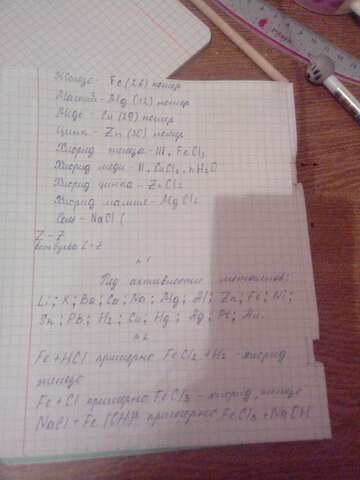 Железо - Fe (26) номер
Магний - Mg (12) номер
Медь - Cu (29) номер
Цинк - Zn (30) номер
Хлорид железа - III, FeCl3
Хлорид меди - II, CuCl2 · nH2O
Хлорид цинка - ZnCl2
Хлорид магния - MgCl2
Соль - NaCl (
Z - Z
Ряд активности металлов:
Li; K; Ba; Ca; Na; Mg; Al; Zn; Fe; Ni;
Sn; Pb; H2; Cu; Hg; Ag; Pt; Au.
Fe + HCl примерно FeCl2 + H2 - хлорид
железо
Fe + Cl примерно FeCl3 - хлорид железо
NaCl + Fe (OH)3 примерно FeCl3 + NaOH